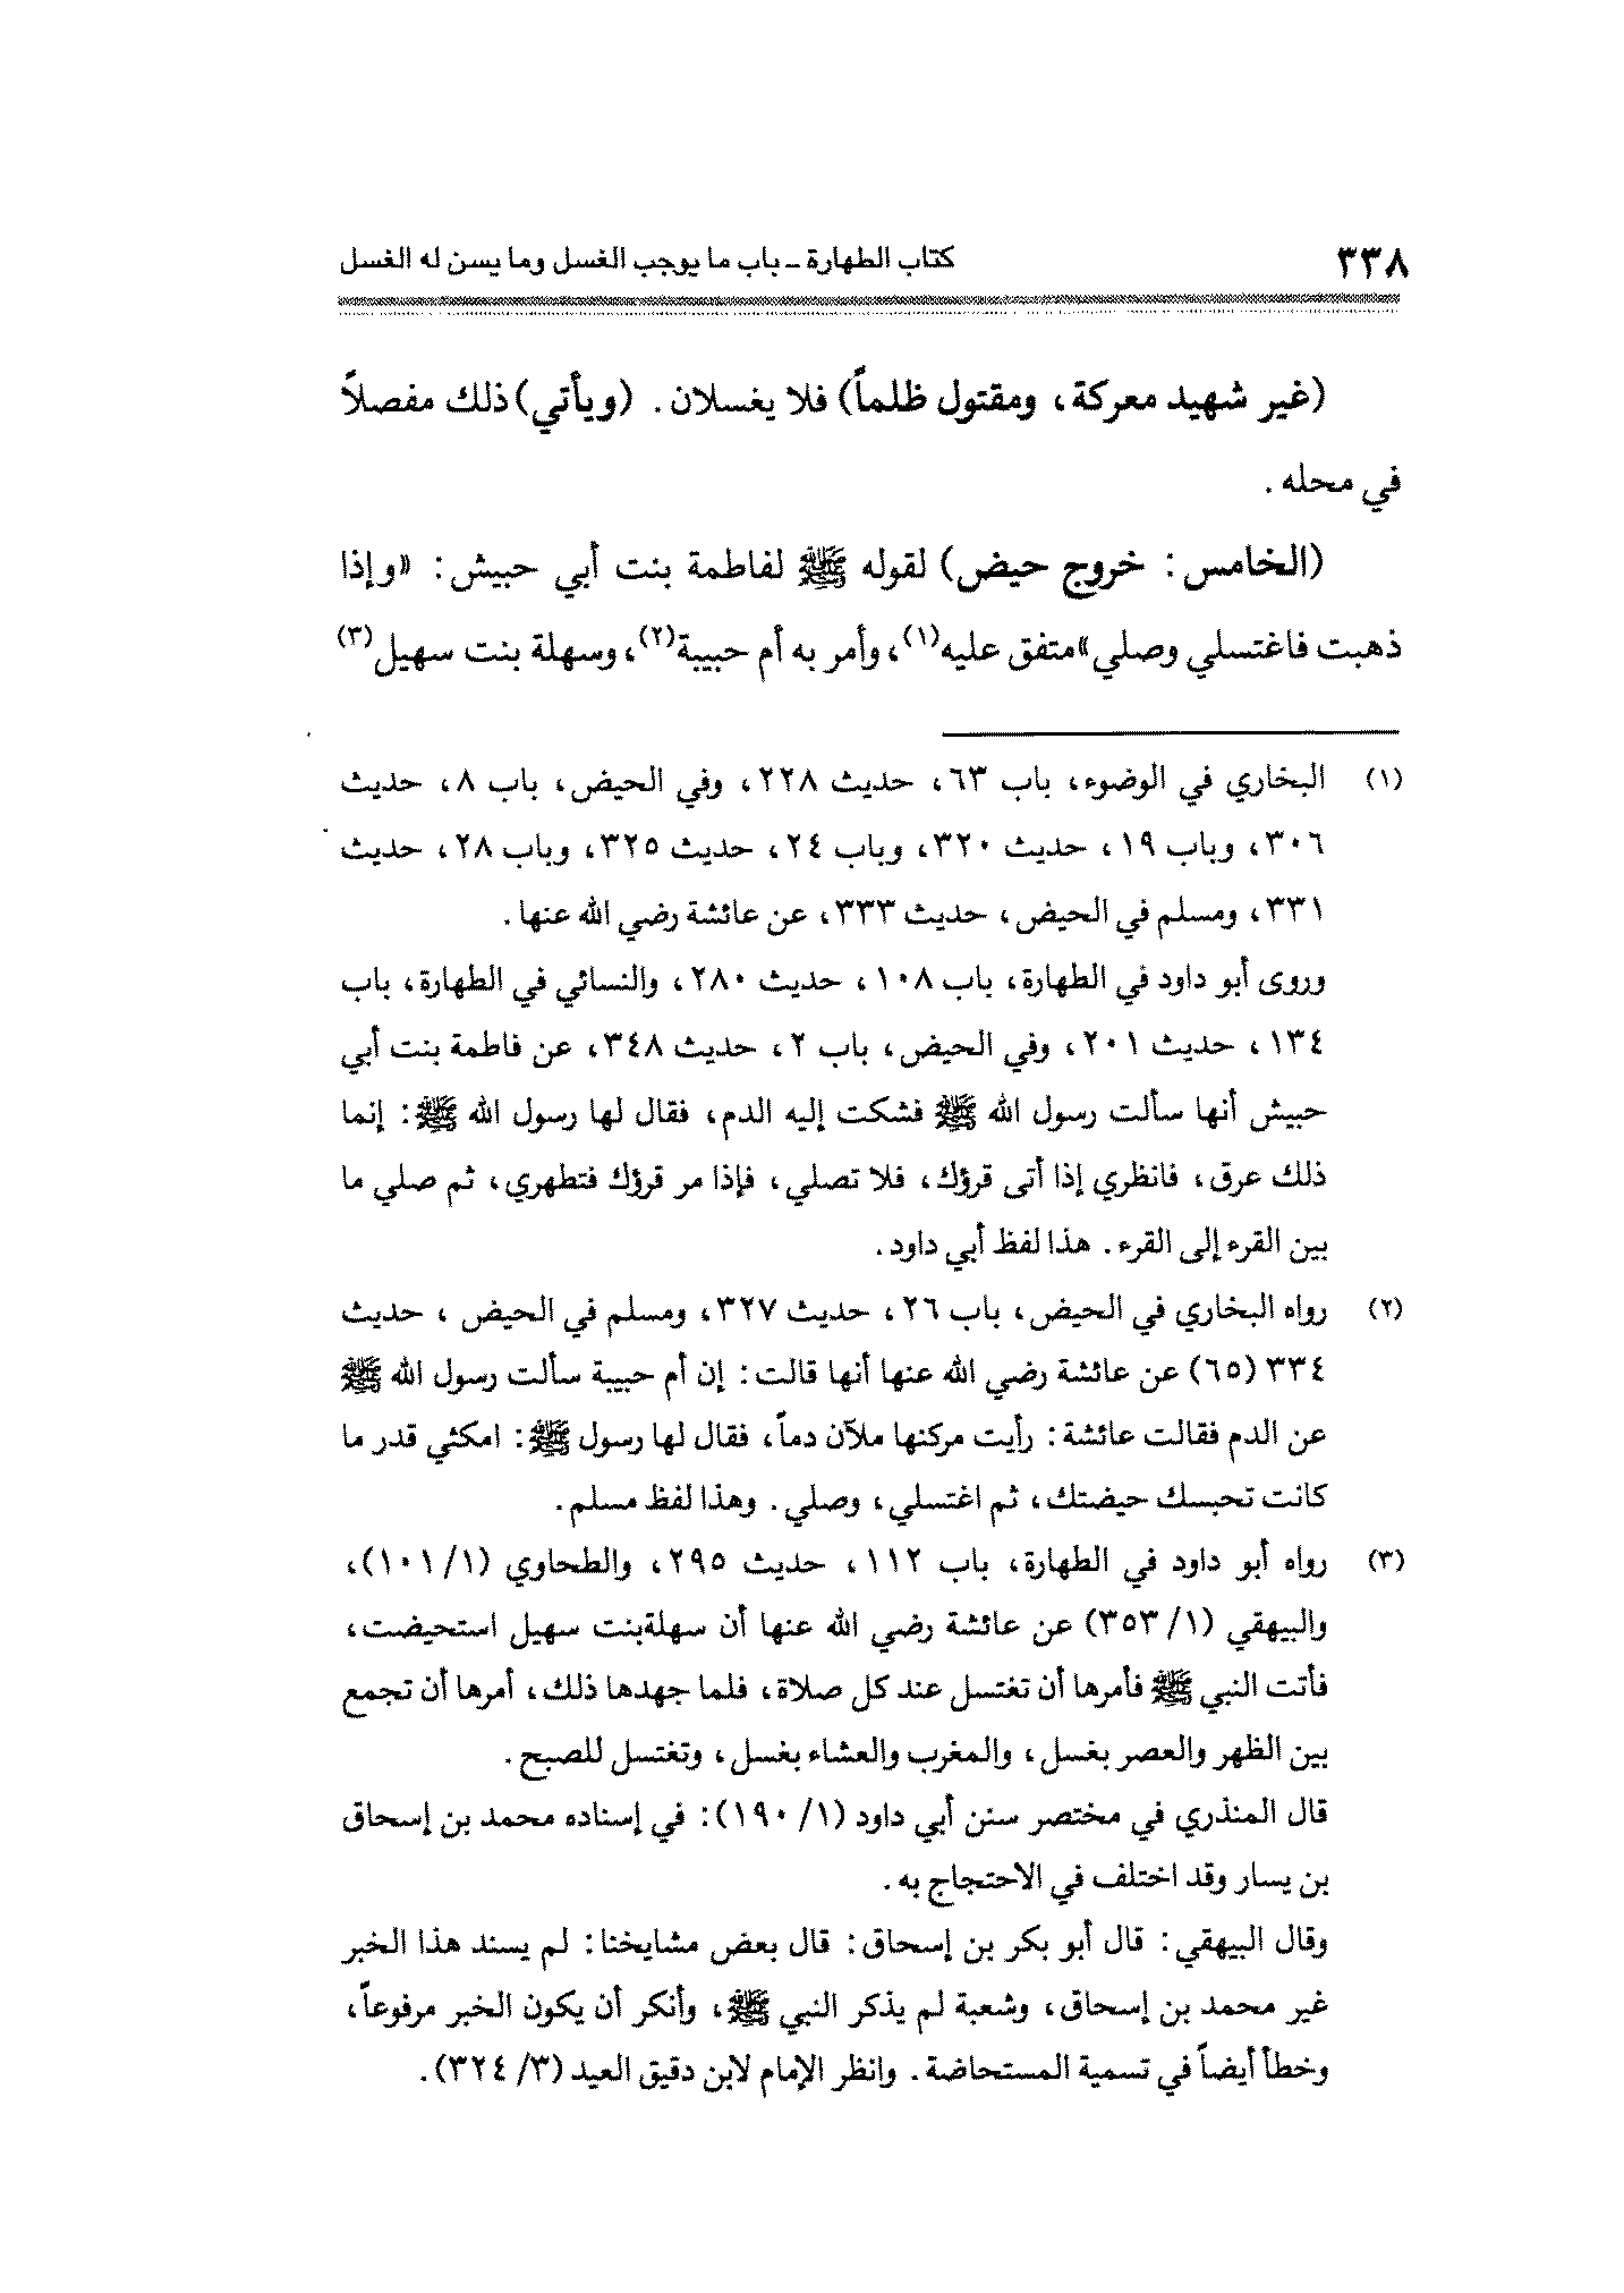 ٣٣٨
كتاب الطهارة ــ باب ما يوجب الغسل وما يسن له الغسل
(غير شهيد معركة، ومقتول ظلماً) فلا يغسلان. (ويأتي) ذلك مفصلاً
في محله.
(الخامس: خروج حيض) لقوله ﷺ لفاطمة بنت أبي حبيش: «وإذا
ذهبت فاغتسلي وصلي» متفق عليه(١)، وأمر به أم حبيبة(٢)، وسهلة بنت سهيل(٣)
(١) البخاري في الوضوء، باب ٦٣، حديث ٢٢٨، وفي الحيض، باب ٨، حديث
٣٠٦، وباب ١٩، حديث ٣٢٠، وباب ٢٤، حديث ٣٢٥، وباب ٢٨، حديث
٣٣١، ومسلم في الحيض، حديث ٣٣٣، عن عائشة رضي الله عنها.
وروى أبو داود في الطهارة، باب ١٠٨، حديث ٢٨٠، والنسائي في الطهارة، باب
١٣٤، حديث ٢٠١، وفي الحيض، باب ٢، حديث ٣٤٨، عن فاطمة بنت أبي
حبيش أنها سألت رسول الله ﷺ فشكت إليه الدم، فقال لها رسول الله ﷺ: إنما
ذلك عرق، فانظري إذا أتى قرؤك، فلا تصلي، فإذا مر قرؤك فتطهري، ثم صلي ما
بين القرء إلى القرء. هذا لفظ أبي داود.
(٢) رواه البخاري في الحيض، باب ٢٦، حديث ٣٢٧، ومسلم في الحيض، حديث
٣٣٤ (٦٥) عن عائشة رضي الله عنها أنها قالت: إن أم حبيبة سألت رسول الله ﷺ
عن الدم فقالت عائشة: رأيت مركنها ملآن دماً، فقال لها رسول ﷺ: امكثي قدر ما
كانت تحبسك حيضتك، ثم اغتسلي، وصلي. وهذا لفظ مسلم.
(٣) رواه أبو داود في الطهارة، باب ١١٢، حديث ٢٩٥، والطحاوي (١/ ١٠١)،
والبيهقي (١/ ٣٥٣) عن عائشة رضي الله عنها أن سهلةبنت سهيل استحيضت،
فأتت النبي ﷺ فأمرها أن تغتسل عند كل صلاة، فلما جهدها ذلك، أمرها أن تجمع
بين الظهر والعصر بغسل، والمغرب والعشاء بغسل، وتغتسل للصبح.
قال المنذري في مختصر سنن أبي داود (١/ ١٩٠): في إسناده محمد بن إسحاق
بن يسار وقد اختلف في الاحتجاج به.
وقال البيهقي: قال أبو بكر بن إسحاق: قال بعض مشايخنا: لم يسند هذا الخبر
غير محمد بن إسحاق، وشعبة لم يذكر النبي ﷺ، وأنكر أن يكون الخبر مرفوعاً،
وخطأ أيضاً في تسمية المستحاضة. وانظر الإمام لابن دقيق العيد (٣/ ٣٢٤).